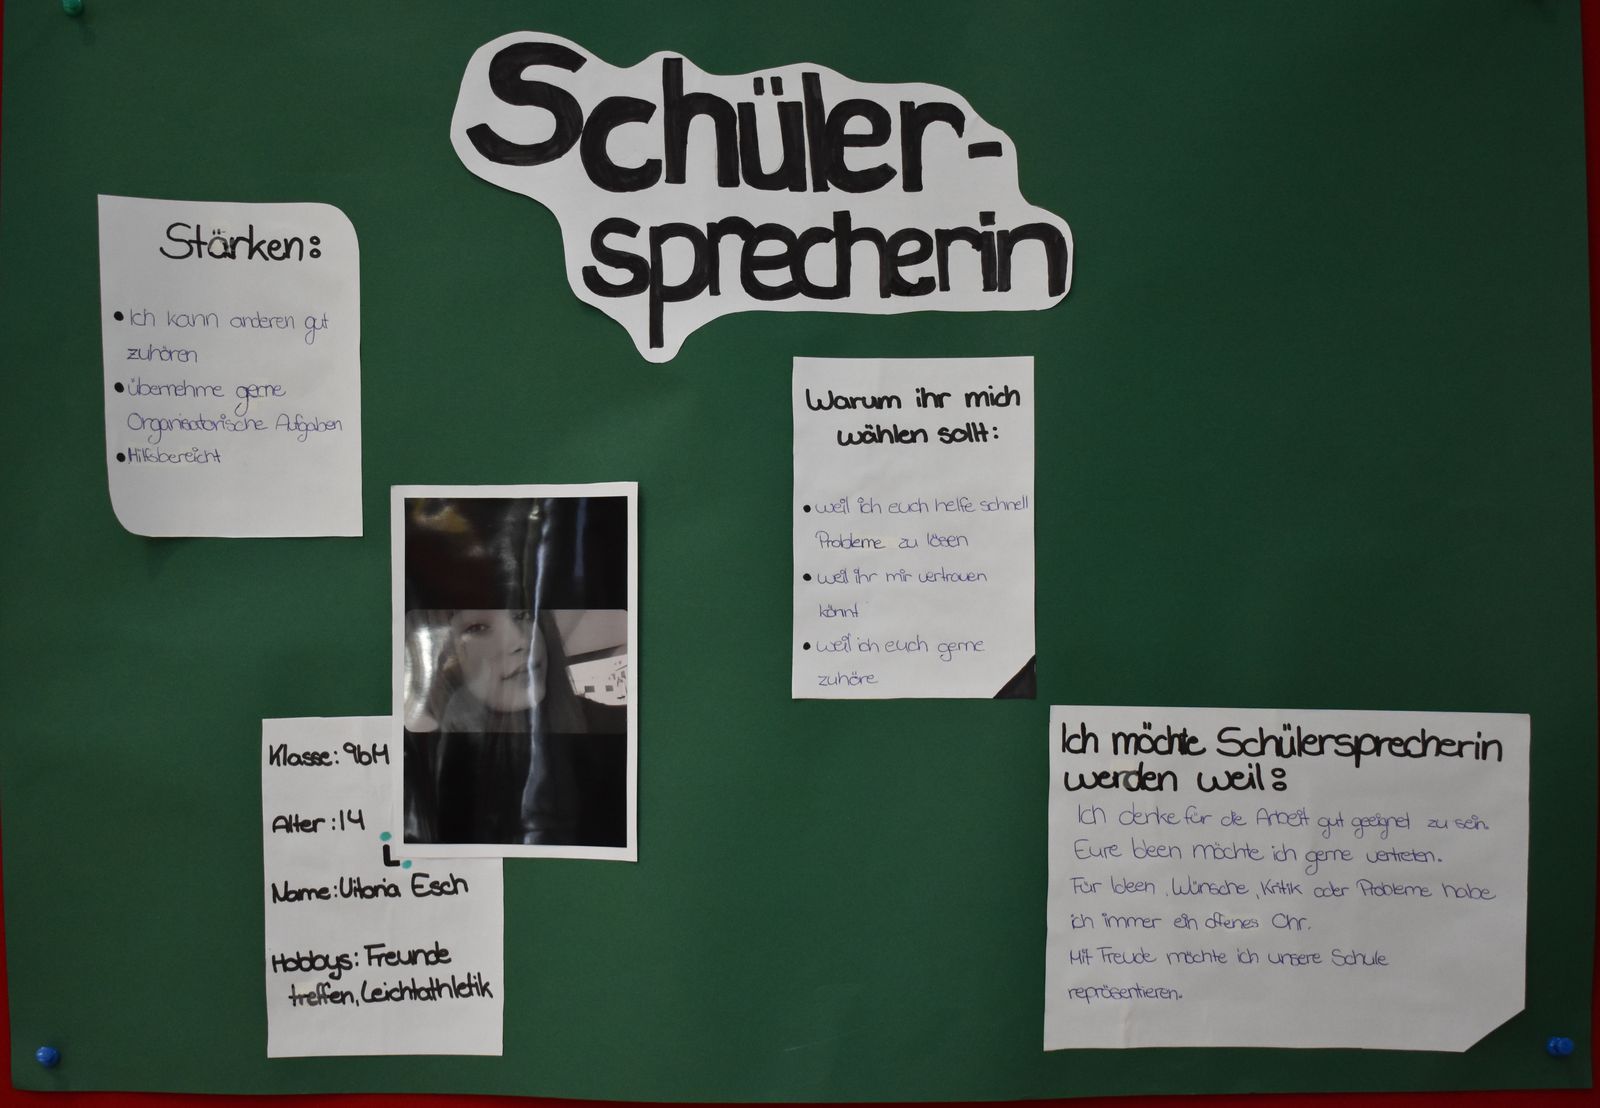 Schüler-
sprecherin
Stärken:
• Ich kann anderen gut
zuhören
• übernehme gerne
Organisatorische Aufgaben
• Hilfsbereicht
Warum ihr mich
wählen sollt:
• weil ich euch helfe schnell
Probleme zu lösen
• weil ihr mir vertrauen
könnt
• weil ich euch gerne
zuhöre
Klasse: 9bM
Alter: 14
Name: Vitoria Esch
Hobbys: Freunde
treffen, Leichtathletik
Ich möchte Schülersprecherin
werden weil:
Ich denke für die Arbeit gut geeignet zu sein.
Eure Ideen möchte ich gerne vertreten.
Für Ideen, Wünsche, Kritik oder Probleme habe
ich immer ein offenes Ohr.
Mit Freude möchte ich unsere Schule
repräsentieren.